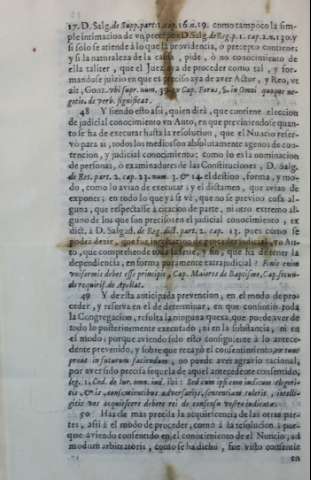 17. D. Salg. de Supp. part. 1. cap. 16. n. 19. como tampoco la sim-
ple intimacion de vn precepto D. Salg. de Reg. p. 1. cap. 2. n. 130. y
si solo se atiende à lo que la providencia, ò precepto contiene;
y si la naturaleza de la causa, pide, ò no conocimiento de
ella taliter, que el Juez aya de proceder como tal, y for-
mandose juizio en que es preciso aya de aver Actor, y Reo, ve
ais, Gonz. vbi supr. num. 39. Cap. Forus, §. in omni quoque ne-
gotio, de verb. significat.
48 Y siendo esto assi, quien dirà, que contiene eleccion
de judicial conocimiento vn Auto, en que previniendose quan-
to se ha de executar hasta la resolucion, que el Nuncio reser-
vò para si, todos los medios son absolutamente agenos de con-
tencion, y judicial conocimiento; como lo es la nominacion
de personas, ò examinadores de las Constituciones, D. Salg.
de Ret. part. 2. cap. 23. num. 3. & 14. el destino, forma, y mo-
do, como lo avian de executar; y el dictamen, que avian de
exponer; en todo lo que yà se vè, que no se previno cosa al-
guna, que respectasse à citacion de parte, ni otro extremo al-
guno de los que son precisos en el judicial conocimiento, ex
dict. à D. Salgad. de Reg. dict. part. 2. cap. 13. pues como se
podrà dezir, que fue incoativo de proceder judicial, vn Au-
to, que comprehende todo el fin, que ha de tener la
dependencia, en forma puramente extrajudicial? Finis enim
vniformis debet esse principio, Cap. Maiores de Baptismo, Cap. secun-
do requiris de Apellat.
49 Y de esta anticipada prevencion, en el modo de pro-
ceder, y reserva en el de determinar, en que consintiò toda
la Congregacion, resulta la ninguna quexa, que puede aver de
todo lo posteriormente executado; ni en la substancia, ni en
el modo; porque aviendo sido esto consiguiente à lo antece-
dente prevenido, y sobre que recayò el consentimiento,
por aver sido precisa sequela de aquel antecedente consentido,
50 Hazese màs precisa la aquiescencia de las otras par-
tes, assi è el modo de proceder, como à la resolucion; por-
que aviendo consentido en el conocimiento de el Nuncio, ad
modum arbitratoris, como se ha dicho, fue visto consentir
en